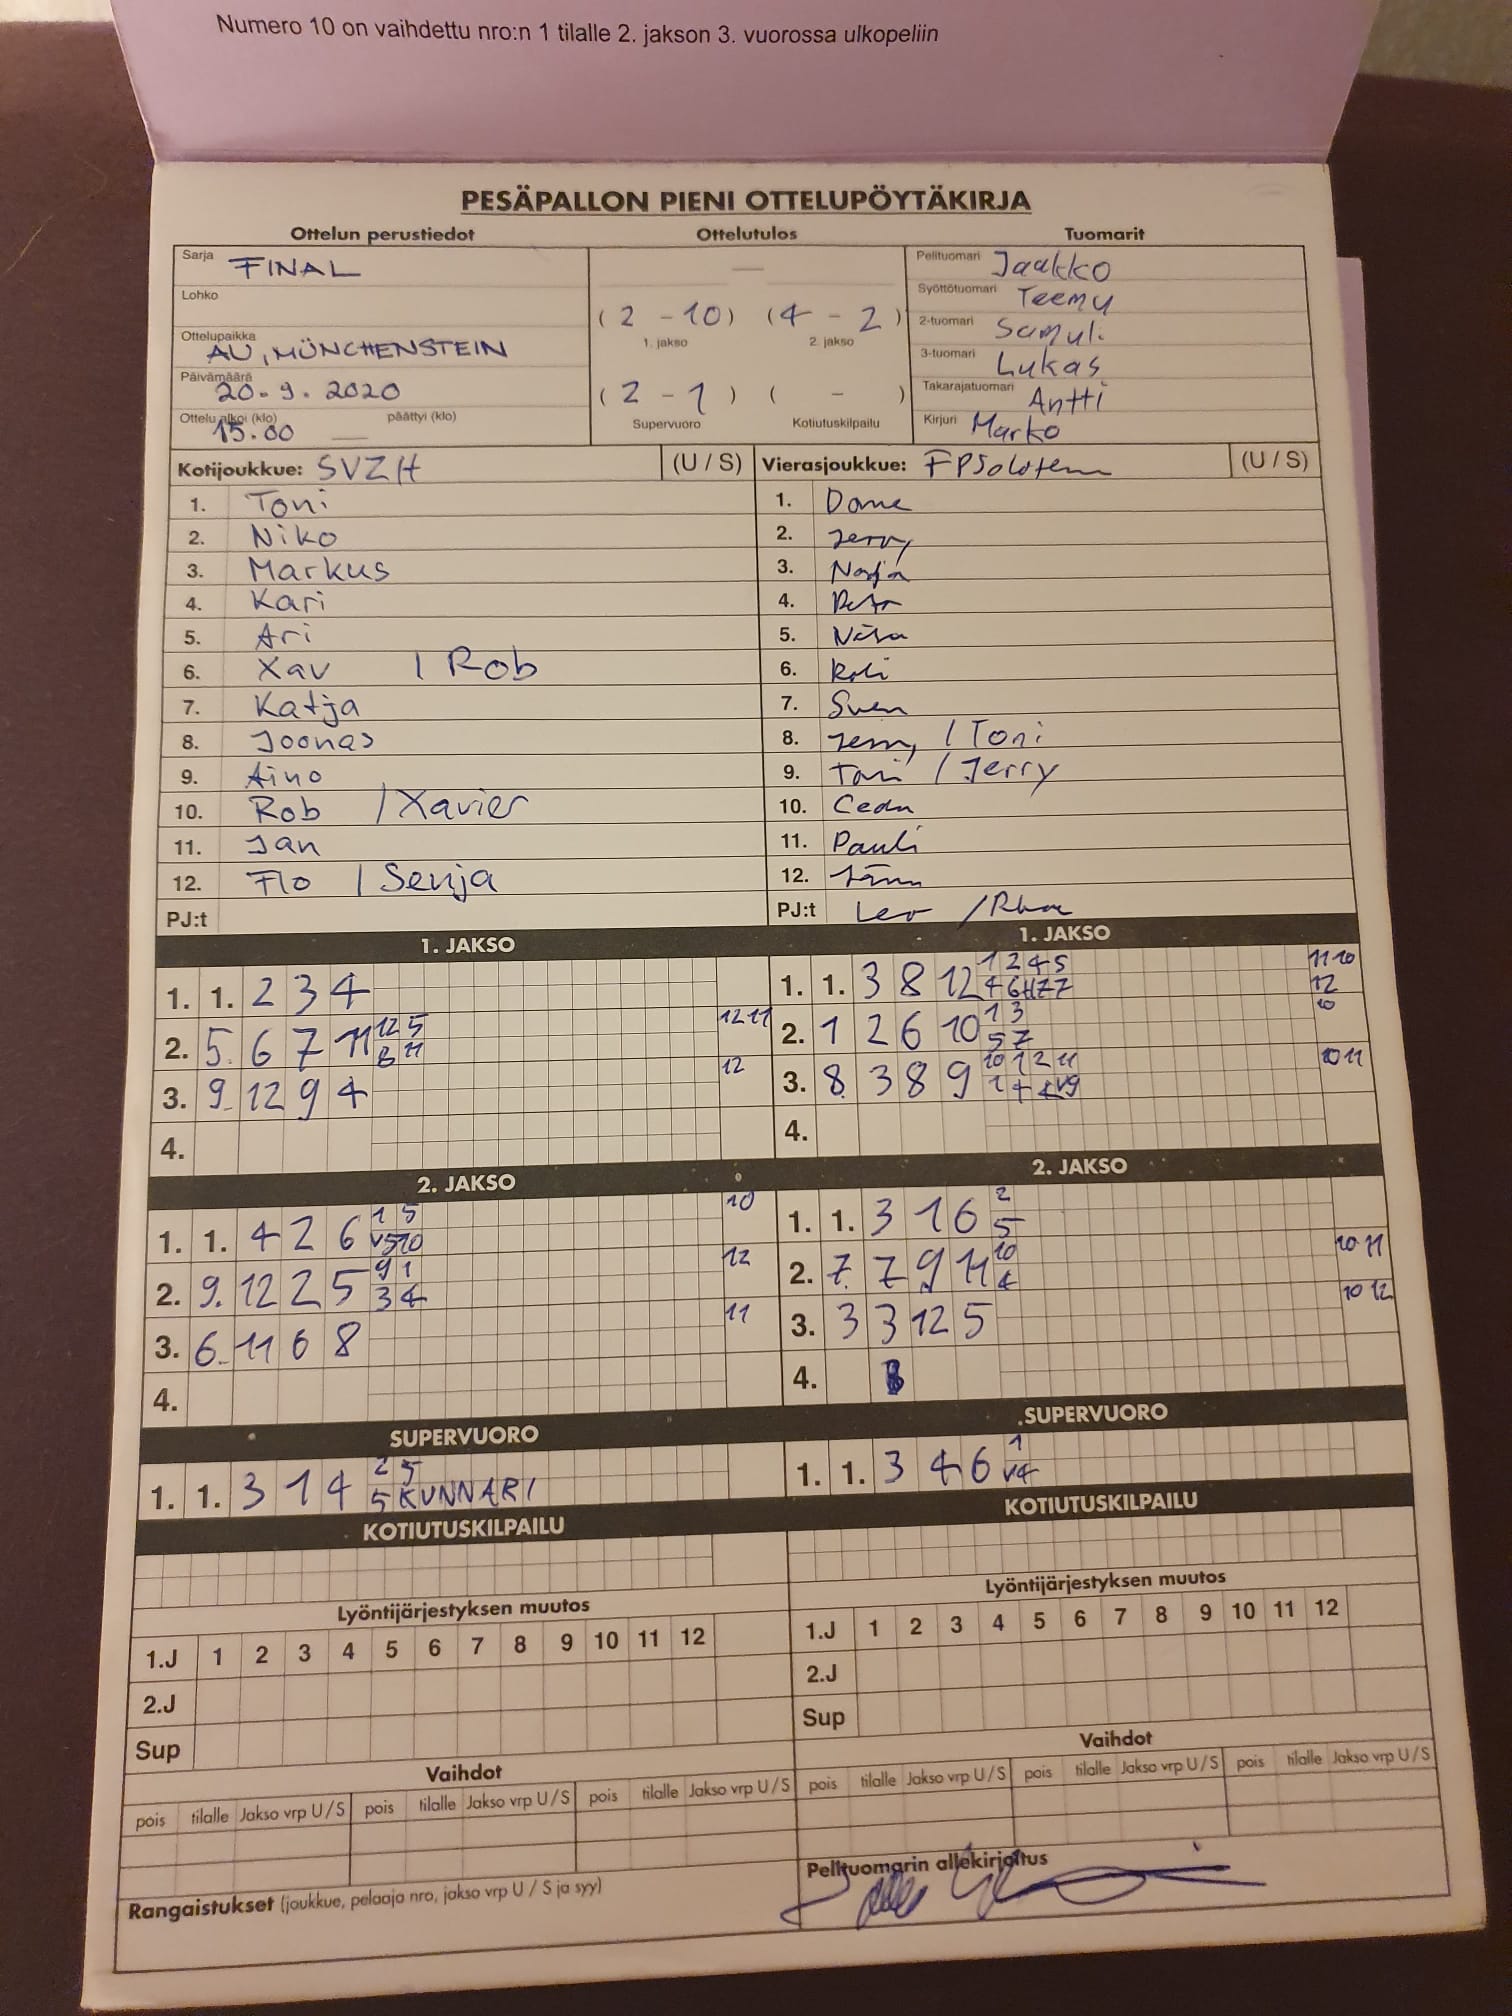 Numero 10 on vaihdettu nro:n 1 tilalle 2. jakson 3. vuorossa ulkopeliin
PESÄPALLON PIENI OTTELUPÖYTÄKIRJA
Ottelun perustiedot Ottelutulos Tuomarit
Sarja FINAL — Pelituomari Jaakko
Lohko Syöttötuomari Teemu
(2 - 10) (4 - 2) 2-tuomari Samuli
Ottelupaikka AU, MÜNCHENSTEIN 1. jakso 2. jakso 3-tuomari Lukas
Päivämäärä 20.9.2020 (2 - 1) ( - ) Takarajatuomari Antti
Ottelu alkoi (klo) 15.00 päättyi (klo) — Supervuoro Kotiutuskilpailu Kirjuri Marko
Kotijoukkue: SVZH (U / S) Vierasjoukkue: (U / S)
1. Toni 1. Dome
2. Niko 2. Jerry
3. Markus 3. Nadja
4. Kari 4.
5. Ari 5.
6. Xav / Rob 6.
7. Katja 7. Sven
8. Joonas 8. / Toni
9. Aino 9. Toni / Jerry
10. Rob / Xavier 10.
11. Jan 11. Pauli
12. Flo / Senja 12.
PJ:t PJ:t Leo /
1. JAKSO 1. JAKSO
1. 1. 2 3 4 1. 1. 3 8 12 1 2 4 5 11 10
12
2. 5. 6 7 11 12 5 12 11 2. 1 2 6 10 1 3 10
8 11 5 7
3. 9. 12 9 4 12 3. 8. 3 8 9 10 1 2 11 10 11
4. 4.
2. JAKSO 2. JAKSO
1. 1. 4 2 6 1 5 10 1. 1. 3 1 6 2
V5 10 5
2. 9. 12 2 5 9 1 12 2. 7. 7 9 11 10 10 11
3 4 4
3. 6. 11 6 8 11 3. 3 3 12 5 10 12
4. 4.
SUPERVUORO SUPERVUORO
1. 1. 3 1 4 2 5 1. 1. 3 4 6 1
5 KUNNARI V4
KOTIUTUSKILPAILU KOTIUTUSKILPAILU
Lyöntijärjestyksen muutos Lyöntijärjestyksen muutos
1.J 1 2 3 4 5 6 7 8 9 10 11 12 1.J 1 2 3 4 5 6 7 8 9 10 11 12
2.J 2.J
Sup Sup
Vaihdot Vaihdot
pois tilalle Jakso vrp U / S pois tilalle Jakso vrp U / S pois tilalle Jakso vrp U / S pois tilalle Jakso vrp U / S pois tilalle Jakso vrp U / S pois tilalle Jakso vrp U / S
Pelituomarin allekirjoitus
Rangaistukset (joukkue, pelaaja nro, jakso vrp U / S ja syy)